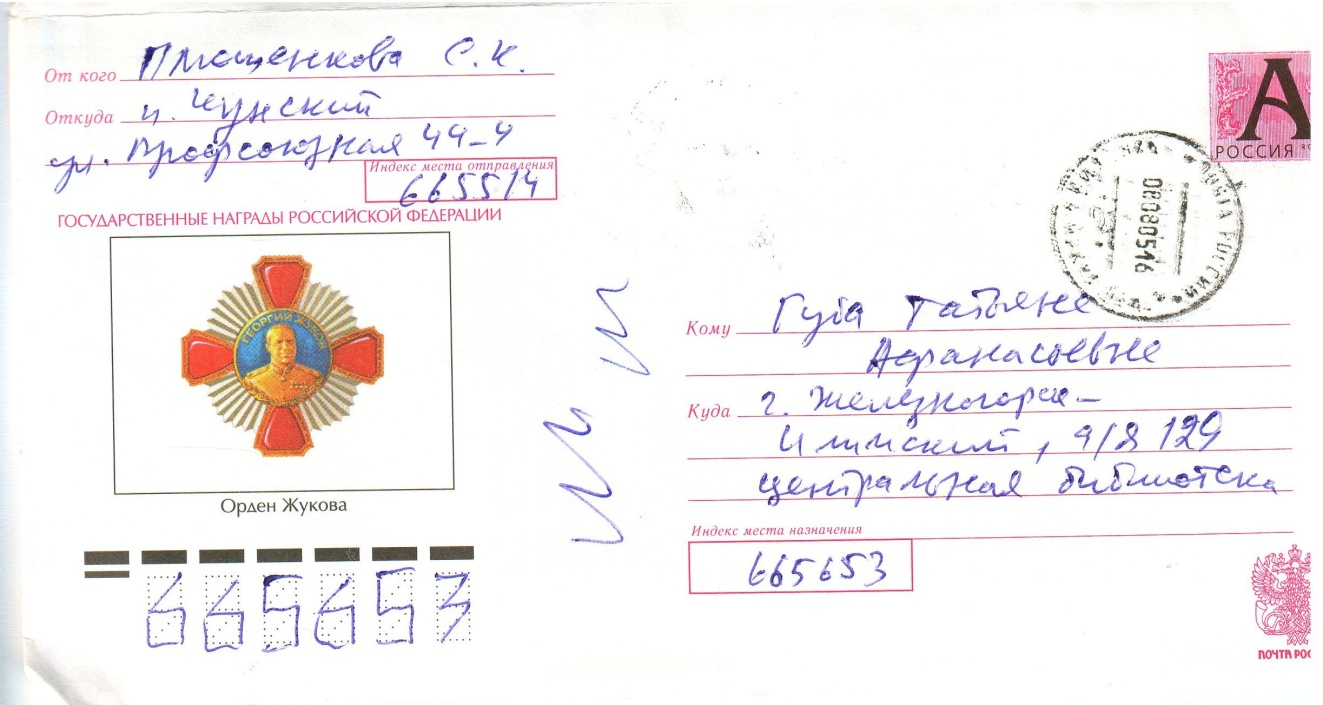 От кого Плющенкова С. К.
Откуда п. Чунский
ул. Профсоюзная 44-4
Индекс места отправления
665514
ГОСУДАРСТВЕННЫЕ НАГРАДЫ РОССИЙСКОЙ ФЕДЕРАЦИИ
ГЕОРГИЙ ЖУКОВ
Орден Жукова
665653
А
РОССИЯ
ПОЧТА РОССИИ
08080516
Кому Губа Татьяне
Афанасьевне
Куда г. Железногорск-
Илимский, а/я 129
центральная библиотека
Индекс места назначения
665653
ПОЧТА РОС